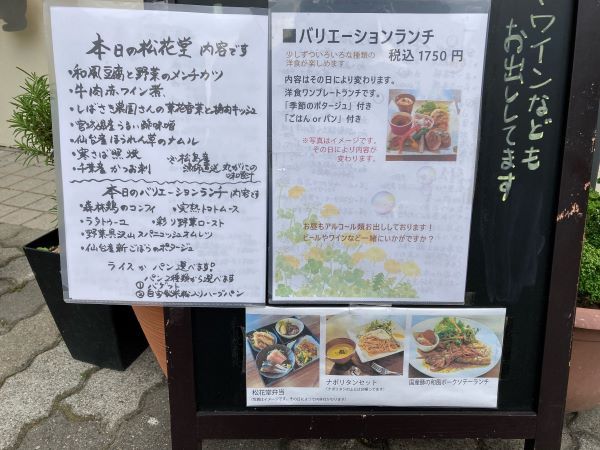 本日の松花堂 内容です
・和風豆腐と野菜のメンチカツ
・牛肉赤ワイン煮
・しばさき菜園さんの
・宮城県産うるい酢味噌
・仙台産ほうれん草のナムル
・寒さば照焼
・千葉産かつお刺
・松島産
漁師直送 丸がにの
味噌汁
本日のバリエーションランチ内容です
・森林鶏のコンフィ
・完熟トマトムース
・ラタトゥーユ
・彩り野菜ロースト
・野菜具沢山スパニッシュオムレツ
・仙台産新ごぼうのポタージュ
ライスか パン 選べます。
パン2種類から選べます
① バゲット
② 自家製米粉入りハーブパン
■バリエーションランチ
少しずついろいろな種類の
洋食が楽しめます
税込 1750 円
内容はその日により変わります。
洋食ワンプレートランチです。
「季節のポタージュ」付き
「ごはん or パン」付き
※写真はイメージです。
その日により内容が
変わります。
お昼もアルコール類お出ししております!
ビールやワインなど一緒にいかがですか?
ワインなども
お出ししてます
松花堂弁当
(写真はイメージです。その日により内容は変わります)
ナポリタンセット
国産豚の和風ポークソテーランチ